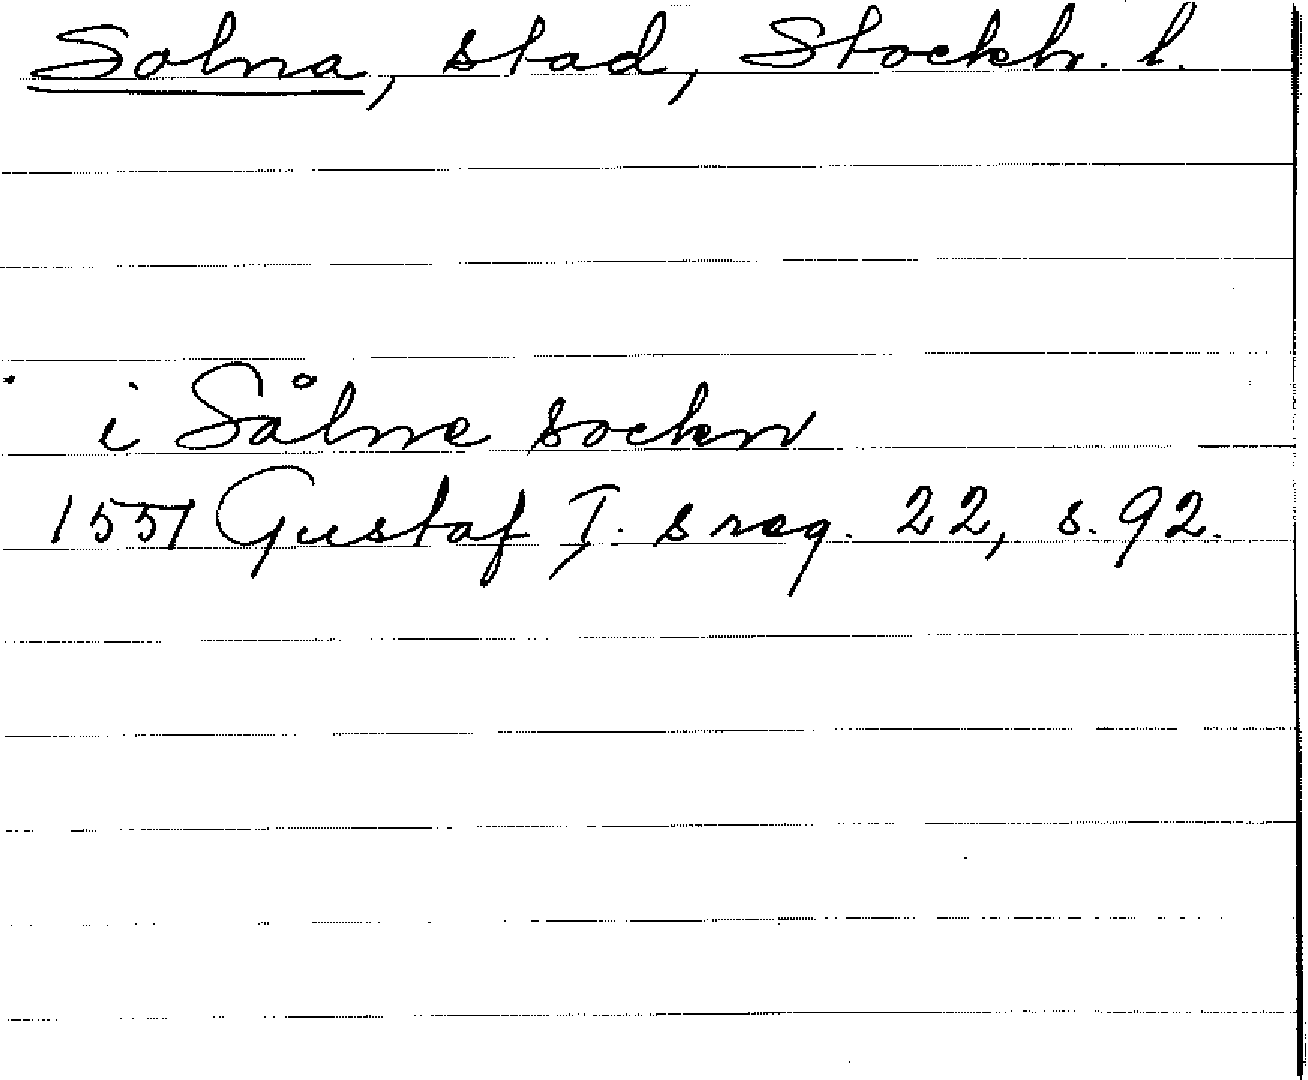 Solna, stad, Stockh. l.
i Sålne sockn
1551 Gustaf I. s reg. 22, s. 92.